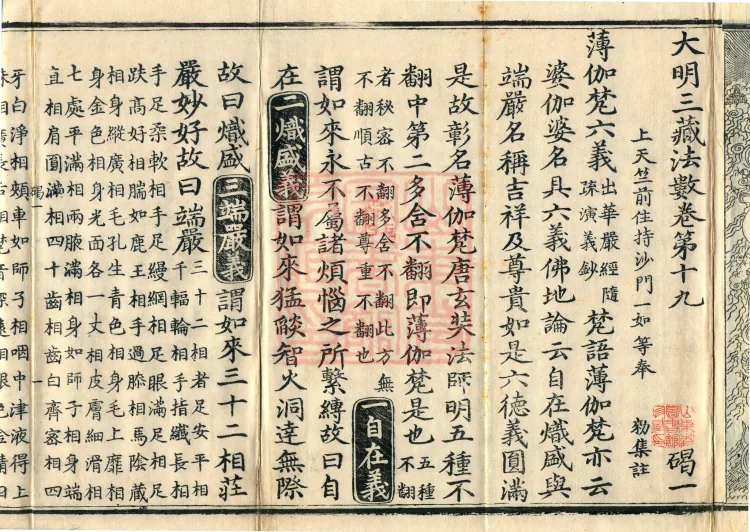 大明三藏法數卷第十九 碣一
上天竺前住持沙門一如等奉 勑集註
薄伽梵六義 出華嚴經隨
疏演義鈔
梵語薄伽梵亦云
婆伽婆名具六義佛地論云自在熾盛與
端嚴名稱吉祥及尊貴如是六德義圓滿
是故彰名薄伽梵唐玄奘法師明五種不
翻中第二多含不翻即薄伽梵是也 五種
不翻
者秘密不翻多含不翻此方無
不翻順古不翻尊重不翻也
一自在義
謂如來永不屬諸煩惱之所繫縛故曰自
在 二熾盛義 謂如來猛燄智火洞達無際
故曰熾盛 三端嚴義 謂如來三十二相莊
嚴妙好故曰端嚴 三十二相者足安平相
千輻輪相手指纖長相
手足柔軟相手足縵網相足跟滿足相足
趺高好相腨如鹿王相手過膝相馬陰藏
相身縱廣相毛孔生青色相身毛上靡相
身金色相身光面各一丈相皮膚細滑相
七處平滿相兩腋滿相身如師子相身端
直相肩圓滿相四十齒相齒白齊密相四
碣一 一
牙白淨相頰車如師子相咽中津液得上